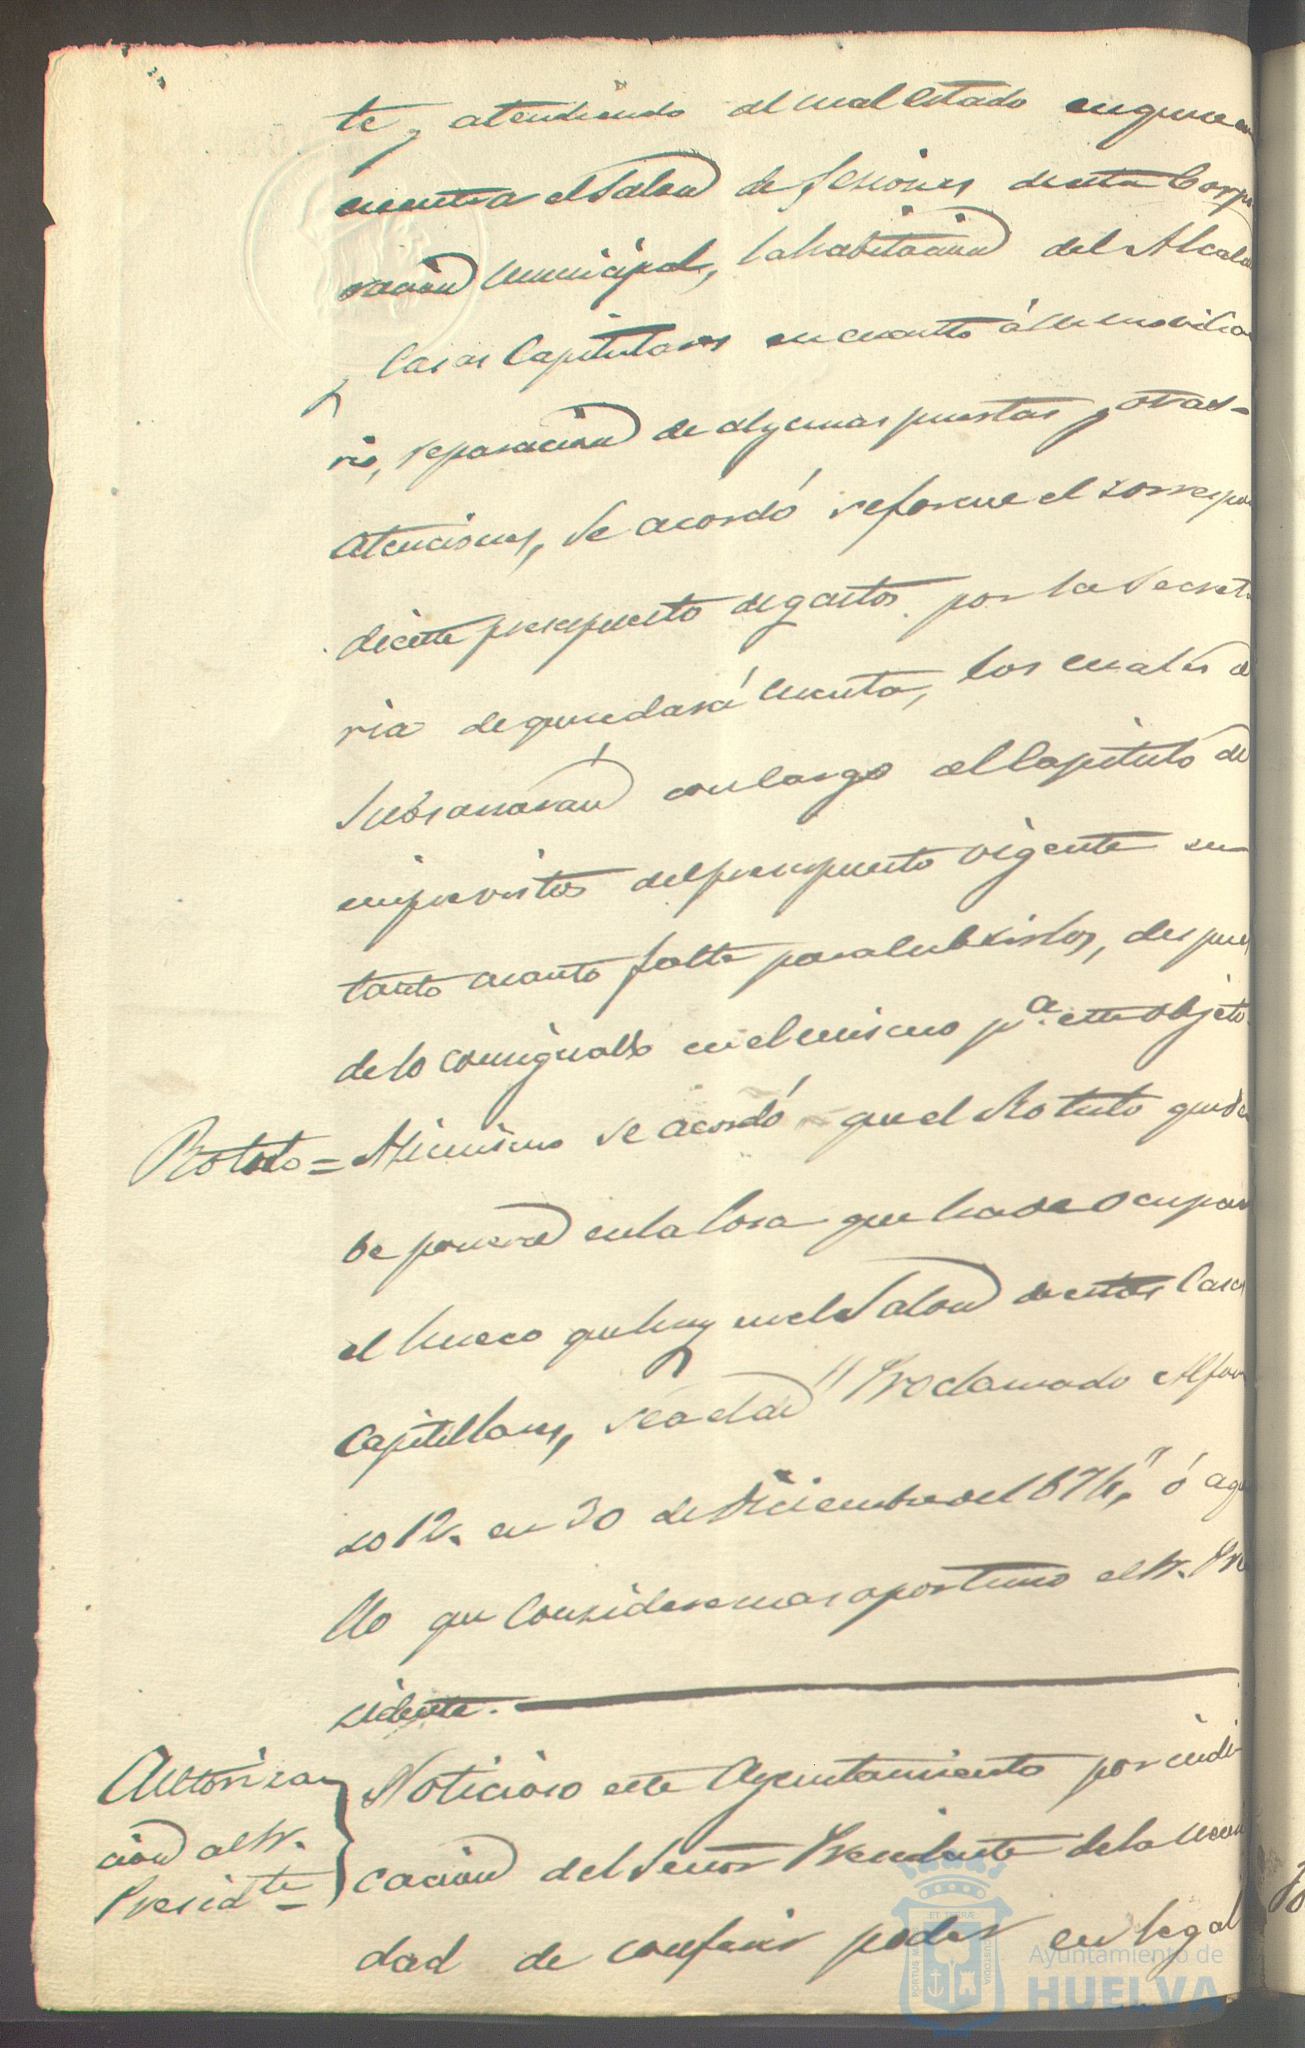 te, atendiendo al mal estado en que se en
cuentra el Salon de Sesiones de esta Corpo
racion municipal, la habitacion del Alcalde
y Casas Capitulares en cuanto á su movilia
rio, reparacion de algunas puertas y otras
atenciones, se acordó se forme el correspon
diente presupuesto de gastos por la Secreta
ria de que se dará cuenta, los cuales se
subsanarán con cargo al Capitulo de
imprevistos del presupuesto vigente en
tanto cuanto falte para cubrirlos, despues
de lo consignado en el mismo pª. este objeto.
Rotulo = Asimismo se acordó que el Rotulo que de
be ponerse en la losa que ha de ocupar
el hueco que hay en el Salon de estas Casas
Capitulares, sea el de "Proclamado Alfon
so 12. en 30 de Diciembre del 1874," ó aque
llo que considere mas oportuno el Sr. Pre
sidente.
Autoriza
cion al Sr.
Presidte =
Noticioso este Ayuntamiento por indi
cacion del Señor Presidente de la necesi
dad de conferir poder en legal
Ayuntamiento de
HUELVA